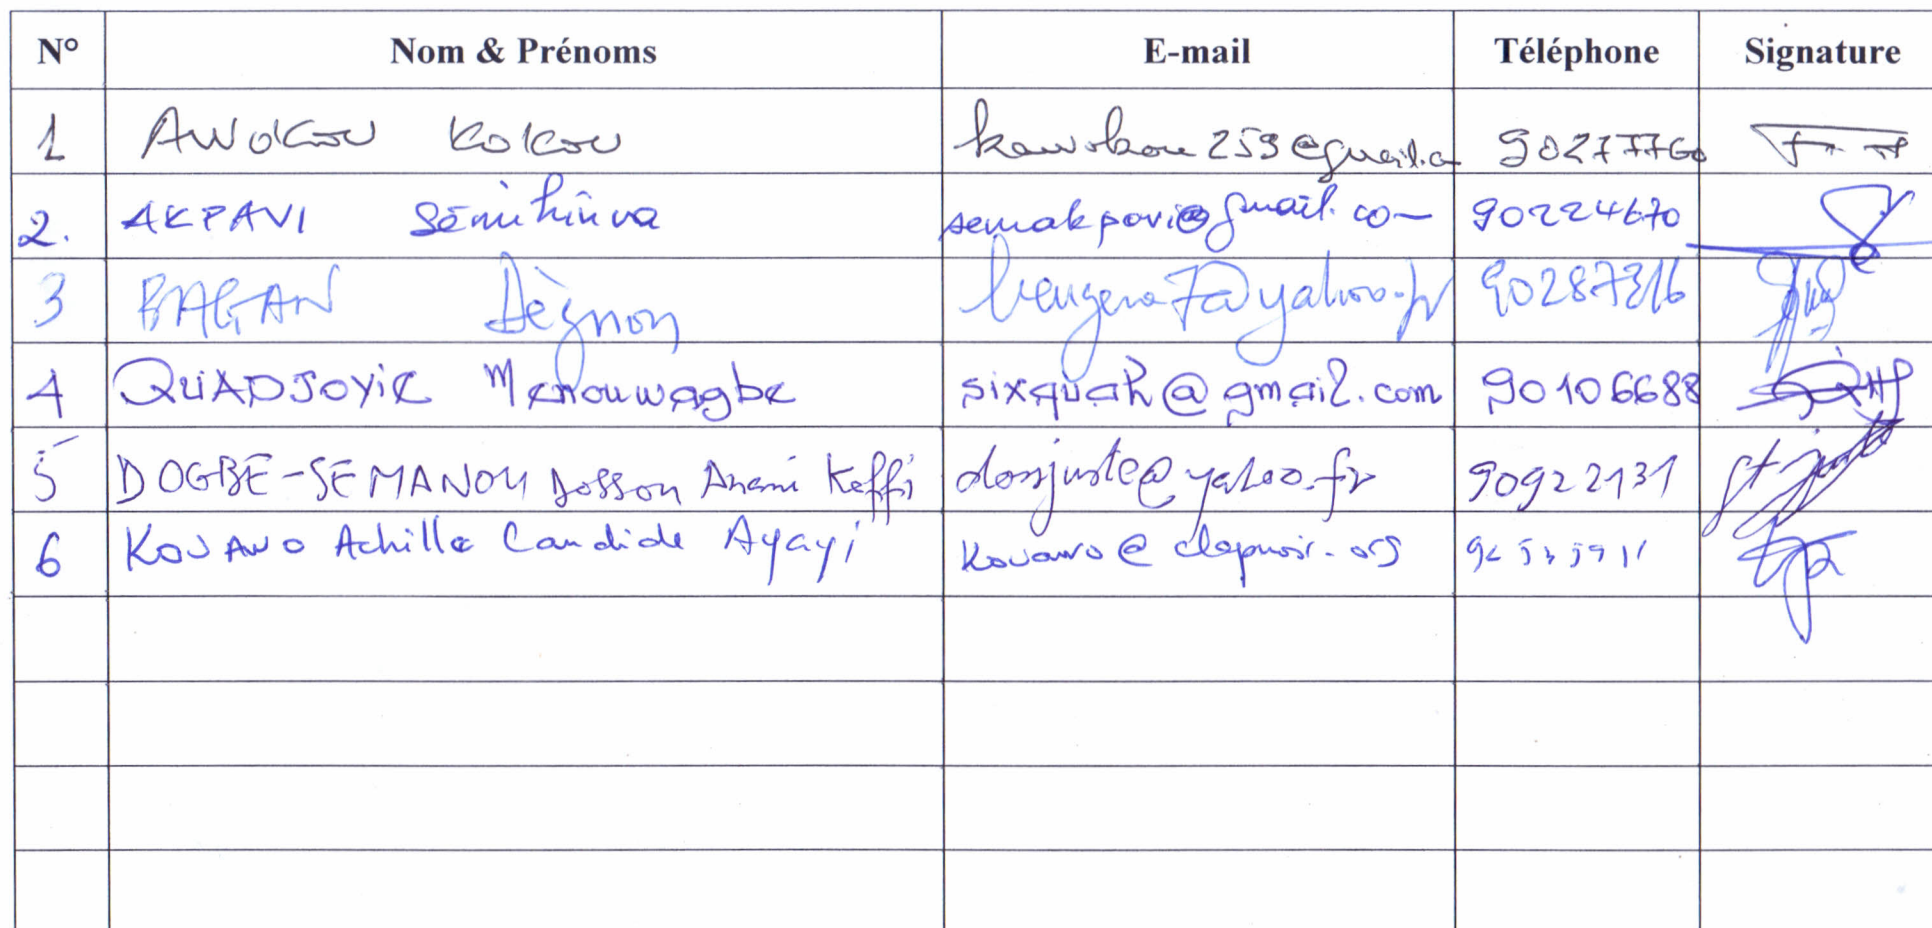 N° Nom & Prénoms E-mail Téléphone Signature
1 AWOKOU Kokou kawokou259@gmail.c 90277760
2. AKPAVI Sêmihinva semakpavi@gmail.com 90224670
3 BAGAN Dègnon 90287316
4 QUADJOVIE Menouwagbe sixquah@gmail.com 90106688
5 DOGBE-SEMANOU Dosson Anani Koffi donjuste@yahoo.fr 90922131
6 KOUAWO Achille Candide Ayayi kouawo@clapnoir.org